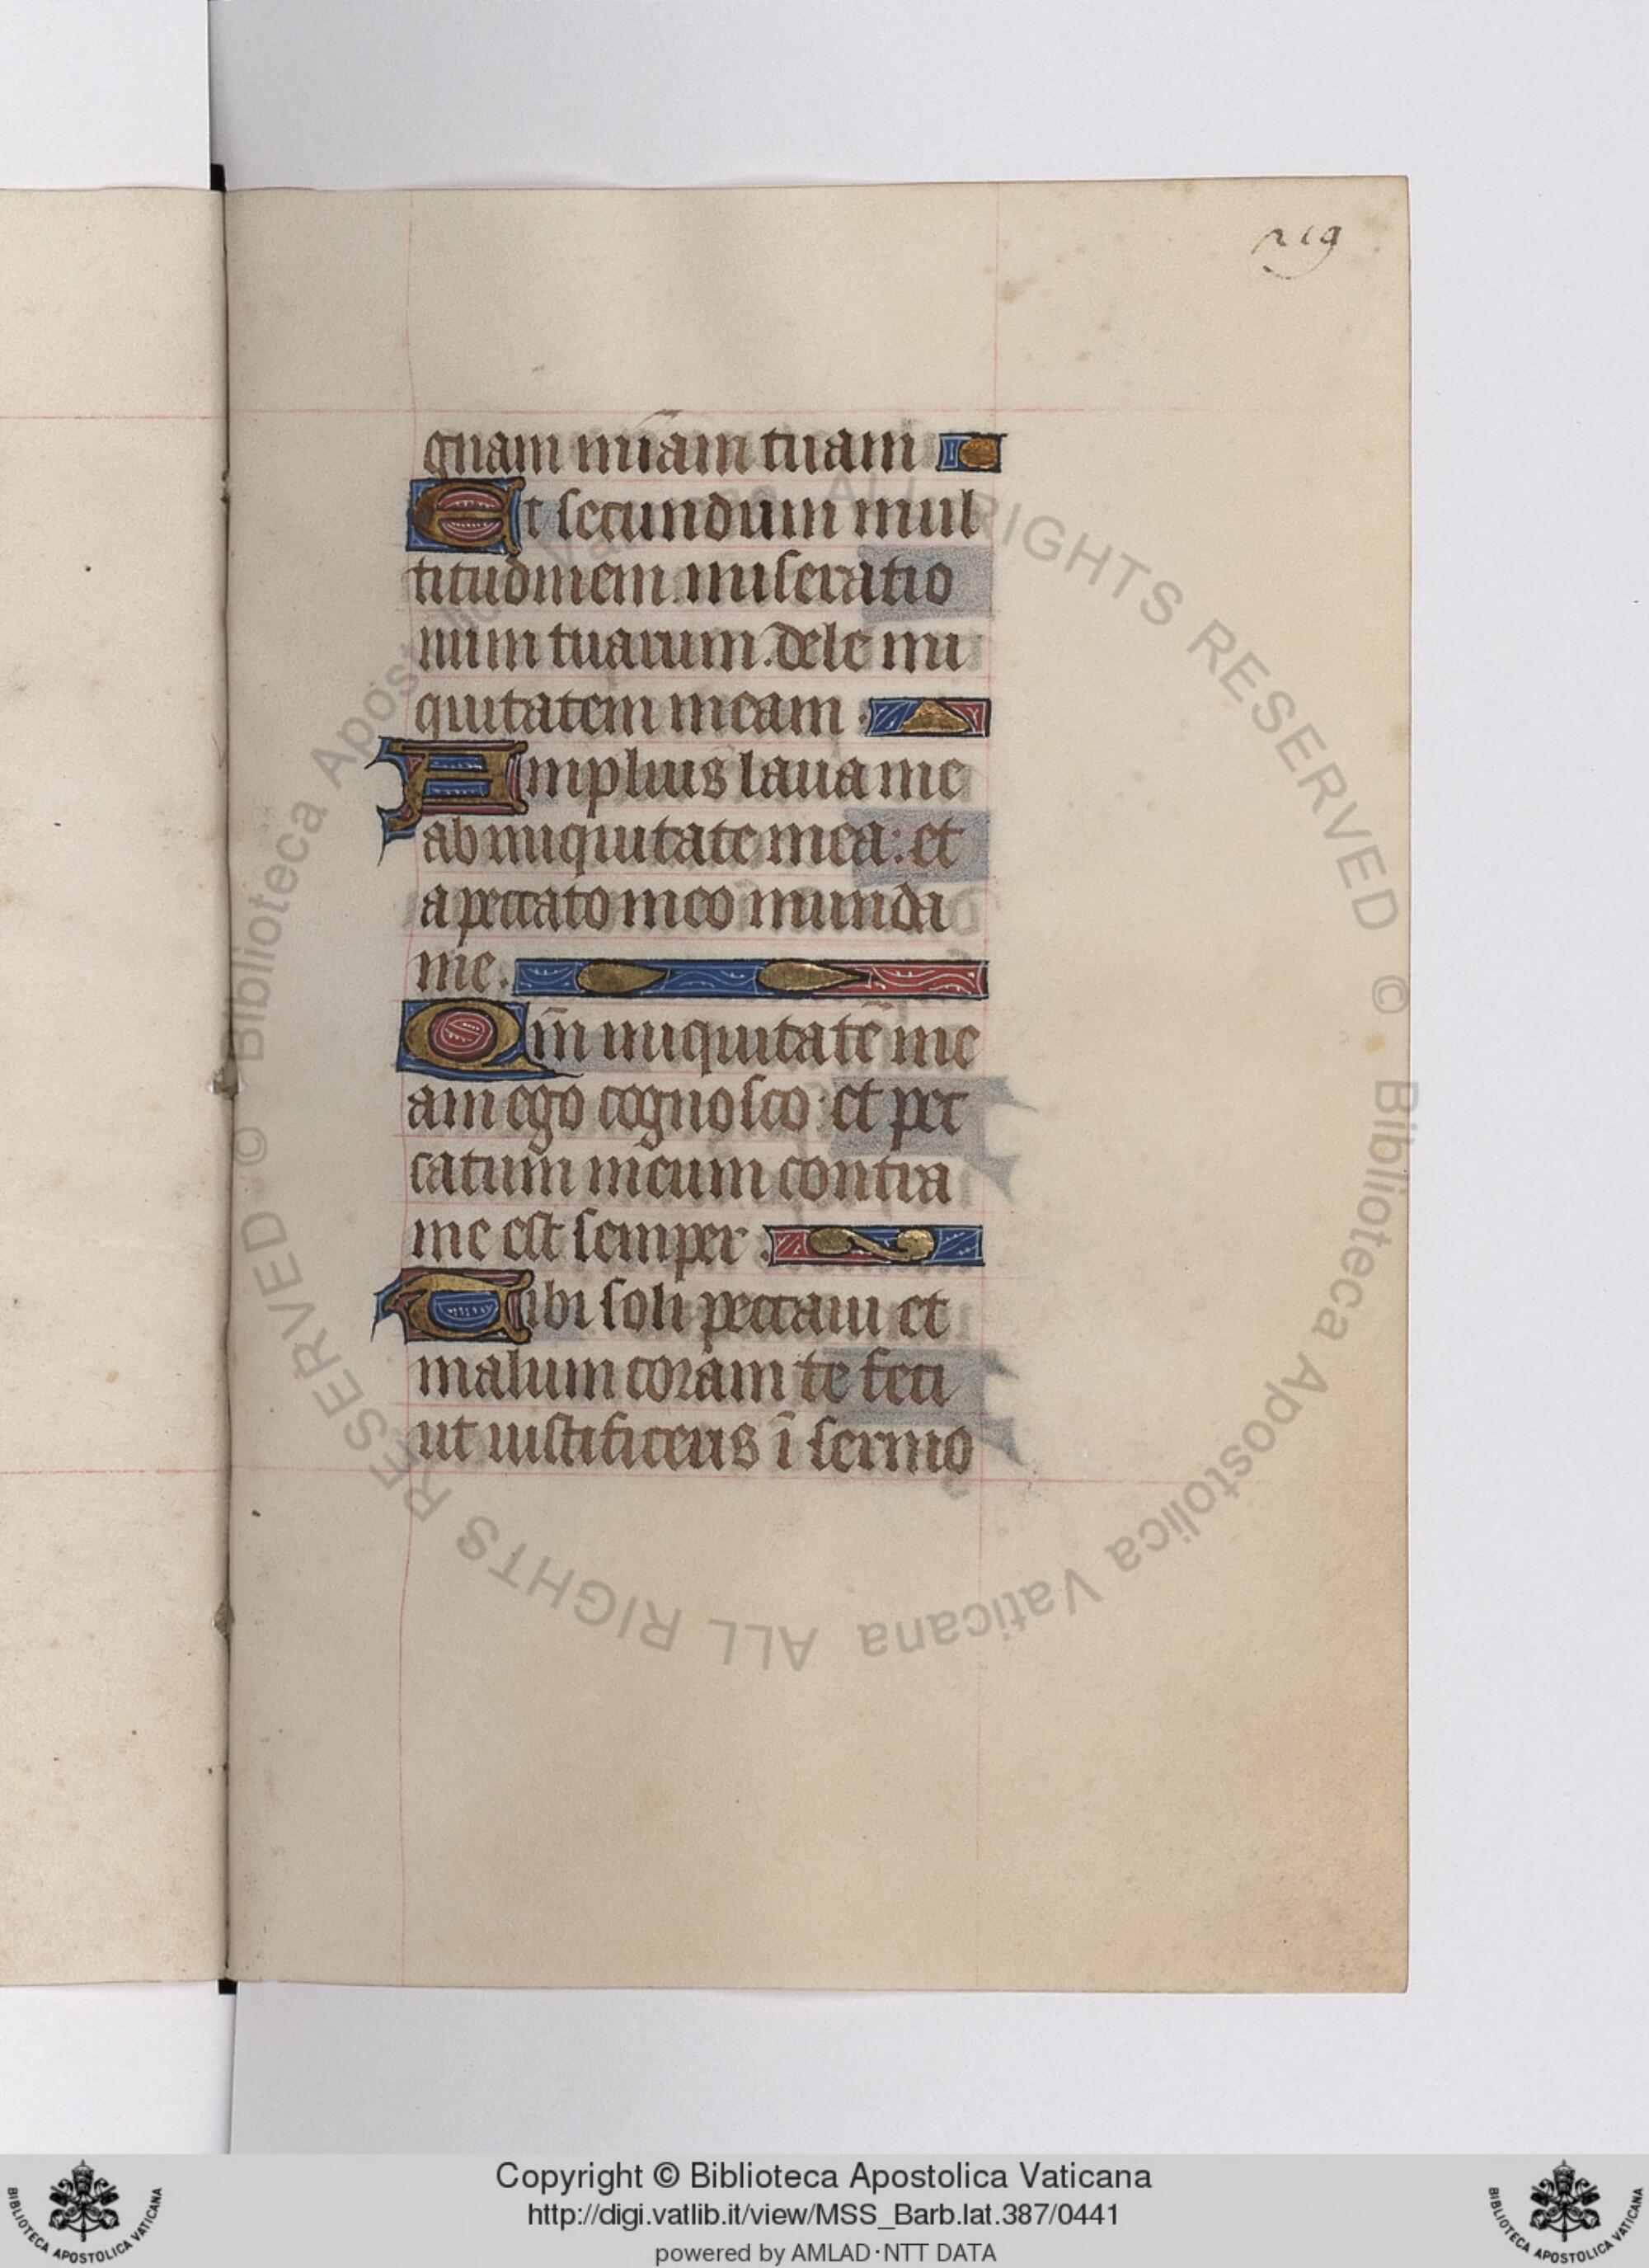 219
gnam mīam tuam
Et secundum mul
titudinem miseratio
num tuarum. dele ini
quitatem meam.
Amplius laua me
ab iniquitate mea: et
a peccato meo munda
me.
Qm̄ iniquitatē me
am ego cognosco: et pec
catum meum contra
me est semper.
Tibi soli peccaui et
malum coram te feci
ut iustificeris ī sermo
© Biblioteca Apostolica Vaticana ALL RIGHTS RESERVED
© Biblioteca Apostolica Vaticana ALL RIGHTS RESERVED
Copyright © Biblioteca Apostolica Vaticana
http://digi.vatlib.it/view/MSS_Barb.lat.387/0441
powered by AMLAD·NTT DATA
BIBLIOTECA APOSTOLICA VATICANA
BIBLIOTECA APOSTOLICA VATICANA